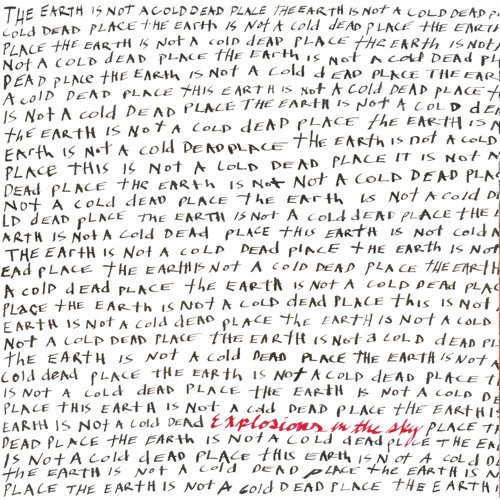 THE EARTH IS NOT A COLD DEAD PLACE THE EARTH IS NOT A COLD DEAD P
COLD DEAD PLACE THE EARTH IS NOT A COLD dEAD PLACE THE EARTH
PLACE THE EARTH IS NOT A COLD DEAD PLACE the EARTH IS NOT
NOT A COLD DEAD PLACE THE EARTH IS NOT A COLD DEAD PL
DEAD PLACE THE EARTH IS NOT A COLD dEAD PLACE THE EAR
A COLD DEAD PLACE THIS EARTH IS NOT A COLD DEAD PLACE
IS NOT A COLD DEAD PLACE THE EARTH IS NOT A COLD DE
the EARTH IS NOT A COLD dEAD PLACE the EARTH IS N
EARTH IS NOT A COLD DEAD PLACE THE EARTH IS NOT A COLD
PLACE THIS IS NOT A COLD DEAD PLACE IT IS NOT
DEAD PLACE THE EARTH IS NOT NOT A COLD DEAD PLAC
NOT A COLD DEAD PLACE THE EARTH IS NOT A COLD D
LD DEAD PLACE THE EARTH IS NOT A COLD DEAD PLACE THE
ARTH IS NOT A COLD DEAD PLACE THIS EARTH IS NOT COLD
THE EARTH IS NOT A COLD DEAD PLACE THE EARTH IS NOT
EAD PLACE THE EARTH IS NOT A COLD DEAD PLACE THE EARTH
A COLD dEAD PLACE THE EARTH IS NOT A COLD DEAD PLAC
PLACE THE EARTH IS NOT A COLD DEAD PLACE THIS IS NOT
EARTH IS NOT A COLD dEAD PLACE THE EARTH IS NOT A COLD
NOT A COLD DEAD PLACE THE EARTH IS NOT A COLD DEAD PL
the EARTH IS NOT A COLD DEAD PLACE THE EARTH IS NOT A
COLD DEAD PLACE THE EARTH IS NOT A COLD DEAD PLACE
IS NOT A COLD DEAD PLACE THE EARTH IS NOT A COLD DE
PLACE THIS EARTH IS NOT A COLD DEAD PLACE THE EARTH
EARTH IS NOT A COLD DEAD Explosions in the sky PLACE
DEAD PLACE THE EARTH IS NOT A COLD dEAD PLACE THE EA
IS NOT A COLD DEAD PLACE THIS EARTH IS NOT A COLD DE
the EARTH IS NOT A COLD DEAD PLACE THE EARTH IS N
PLACE THE EARTH IS NOT A COLD DEAD PLACE THE EARTH